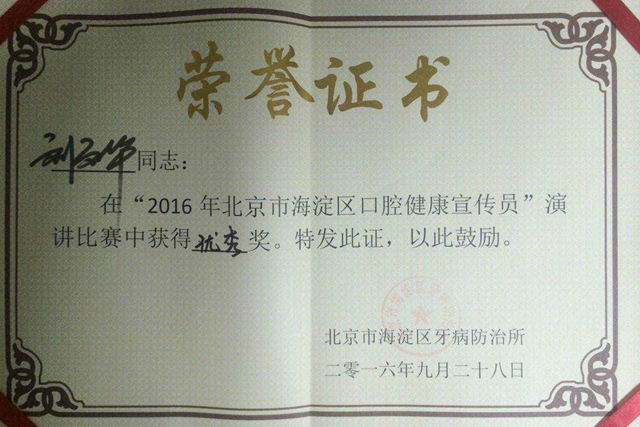 荣誉证书
同志：
在“2016年北京市海淀区口腔健康宣传员”演
讲比赛中获得优秀奖。特发此证，以此鼓励。
北京市海淀区牙病防治所
二零一六年九月二十八日